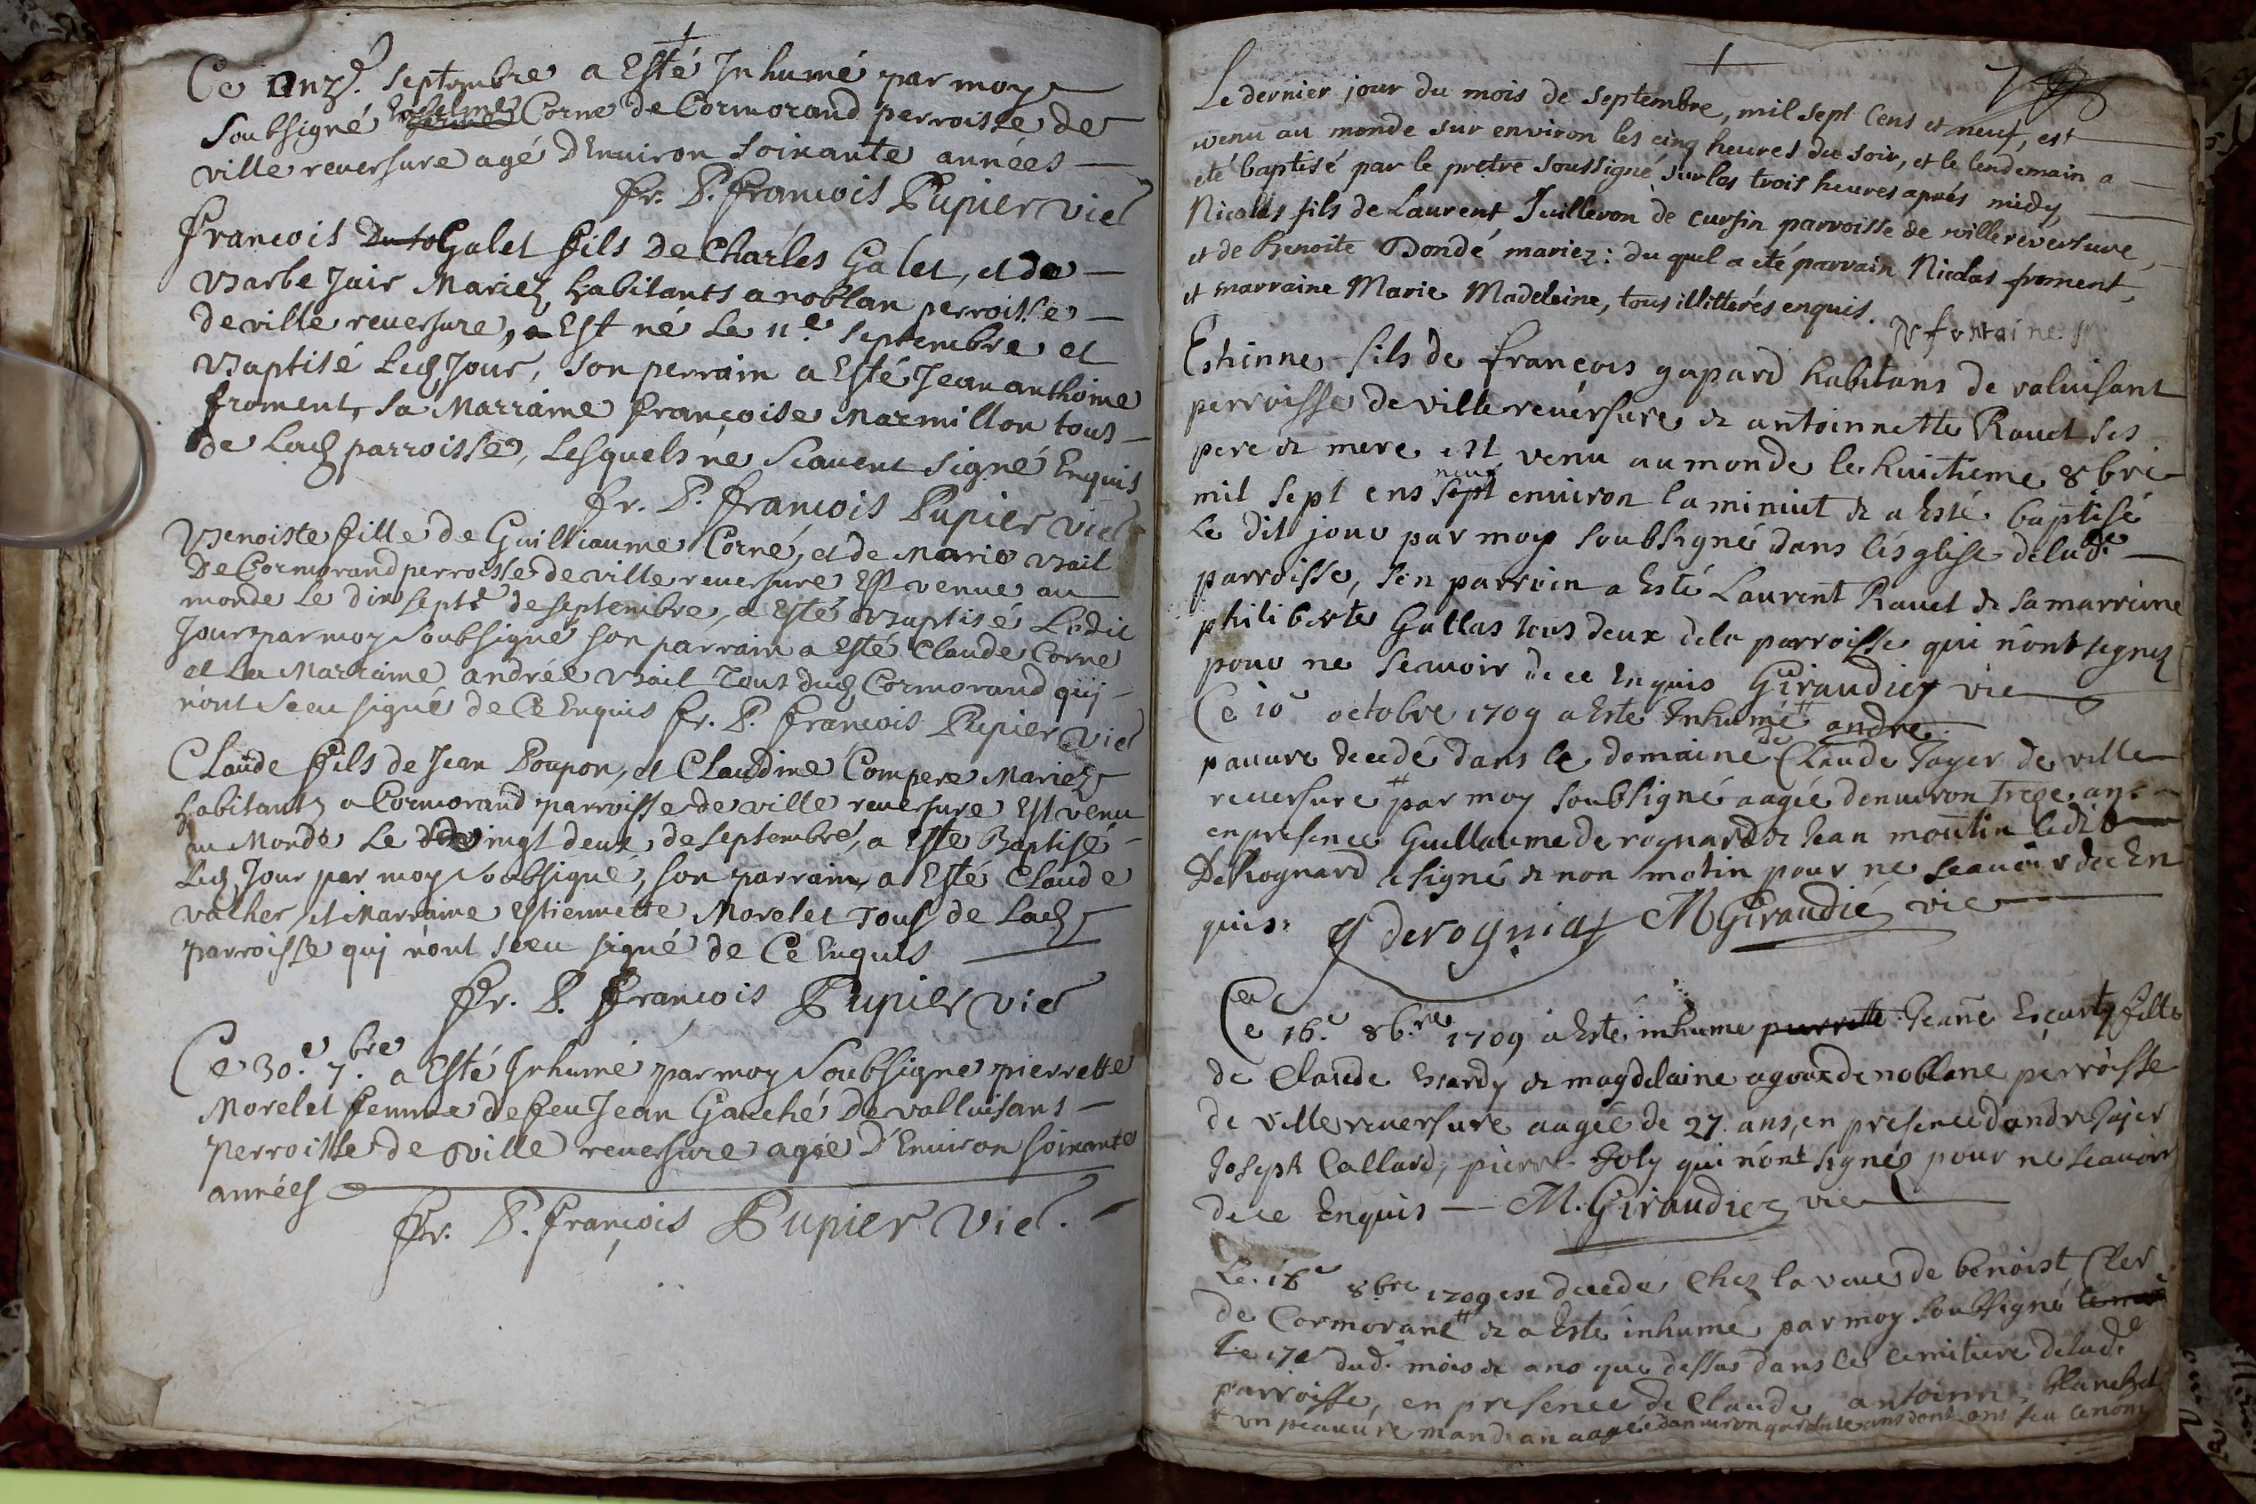 Ce onz.e septembre a Esté Inhumé par moy
soubsigné Corne de Cormorand perroisse de
ville reuersure agé d'Enuiron soixante années
fr. P. francois Pupier vic
francois Galet fils De Charles Galet, et de
Barbe Jair Mariez habitants a noblan perroisse
de ville reuersure, Est né Le 11.e septembre et
Baptisé Led Jour, son perrain a Esté Jean anthoine
froment, sa Marraine françoise Marmillon tous
de Lad parroisse, Lesquels ne scauent signé Enquis
fr. P. francois Pupier vic
Benoiste fille de Guilliaume Corne, et de Marie Bail
De Cormorand perroisse de ville reuersure Est venue au
monde Le dix septe de septembre, a Esté Baptisé Ledit
Jour par moy soubsigné son parrain a Esté Claude Corne
et La Marraine andrée Bail Tous dud Cormorand quj
n'ont sceu signé de Ce Enquis fr. P. francois Pupier vic
Claude fils de Jean Poupon, et Claudine Compere Mariez
habitants a Cormorand parroisse de ville reuersure Est venu
au Monde Le vingt deux de septembre, a Esté Baptisé
Led Jour par moy soubsigné, son parrain a Esté Claude
vacher et Marraine Estiennette Morelet Tous de Lad
parroisse quj n'ont sceu signé de Ce Enquis
fr. P. françois Pupier vic
Ce 30.e 7.bre a Esté Inhumé par moy soubsigne pierrette
Morelet femme de feu Jean Gauché De valluisans
perroisse de ville reuersure agée D'Enuiron soixante
années
fr. P. françois Pupier vic.
Le dernier jour du mois de septembre, mil sept Cens et neuf, est
venu au monde sur environ les cinq heures du soir, et le lendemain a
eté baptisé par le pretre soussigné sur les trois heures aprés midy,
Nicolas fils de Laurent Juilleron de cursin parroisse de ville reversure,
et de Benoite Dondé mariez: du quel a eté parrain Nicolas froment,
et marraine Marie Madeleine, tous illitterés enquis.
fontaine
Estinne fils de françois gapard habitans de valuisant
perroisse de ville reuersure & antoinnette Rauet ses
pere & mere est venu au monde le huictieme 8bre
mil sept ens sept neuf enuiron la minuit & a Esté baptisé
Le dit jour par moy soubsigné dans l'esglise de lade
parroisse, son parrein a Esté Laurent Rauet & sa marreine
philiberte Gallas tous deux dela parroisse qui n'ont signez
pour ne scauoir de ce Enquis Giraudiez vic
Ce 10e octobre 1709 a Esté Inhumé andre
pauure decedé dans le domaine de Claude Tayer de ville
reuersure par moy soubsigné aagée denuiron Treze ans
en presence Guillaume de rognard & Jean moutin ledit
De Rognard a signé & non motin pour ne scauoir de ce En
quis. G derognia M Giraudiez vic
Ce 16.e 8b.re 1709 a Esté inhume Jeane Escurty fille
de Claude & magdelaine de noblane perroisse
de Ville reuersure aagée de 27. ans, en presence d'andre Tayer
Joseph Callard, pierre Joly qui n'ont signés pour ne scauoir
de ce Enquis — M. Giraudiez vic
Le 16e 8bre 1709 est decede Chez la veuue de benoist Cler
de Cormorant & a Esté inhumé par moy soubsigné
Le 17e dud. mois & ans que dessus dans le cemitiere delad.e
parroisse, en presence de Claude antoine Blanchet
un peauure mandian aagée danuiron quarante ans dont ons seu le nom